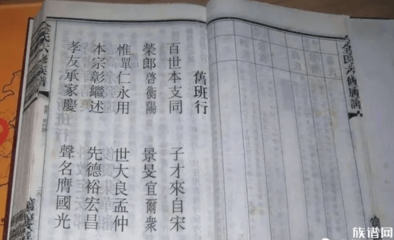 舊班行
百世本支同 子才來自宋
榮郎啓衡陽 景旻宜爾衆
惟單仁永用 世大良孟仲
本宗彰繼述 先德裕宏昌
孝友承家慶 聲名膺國光
族谱网